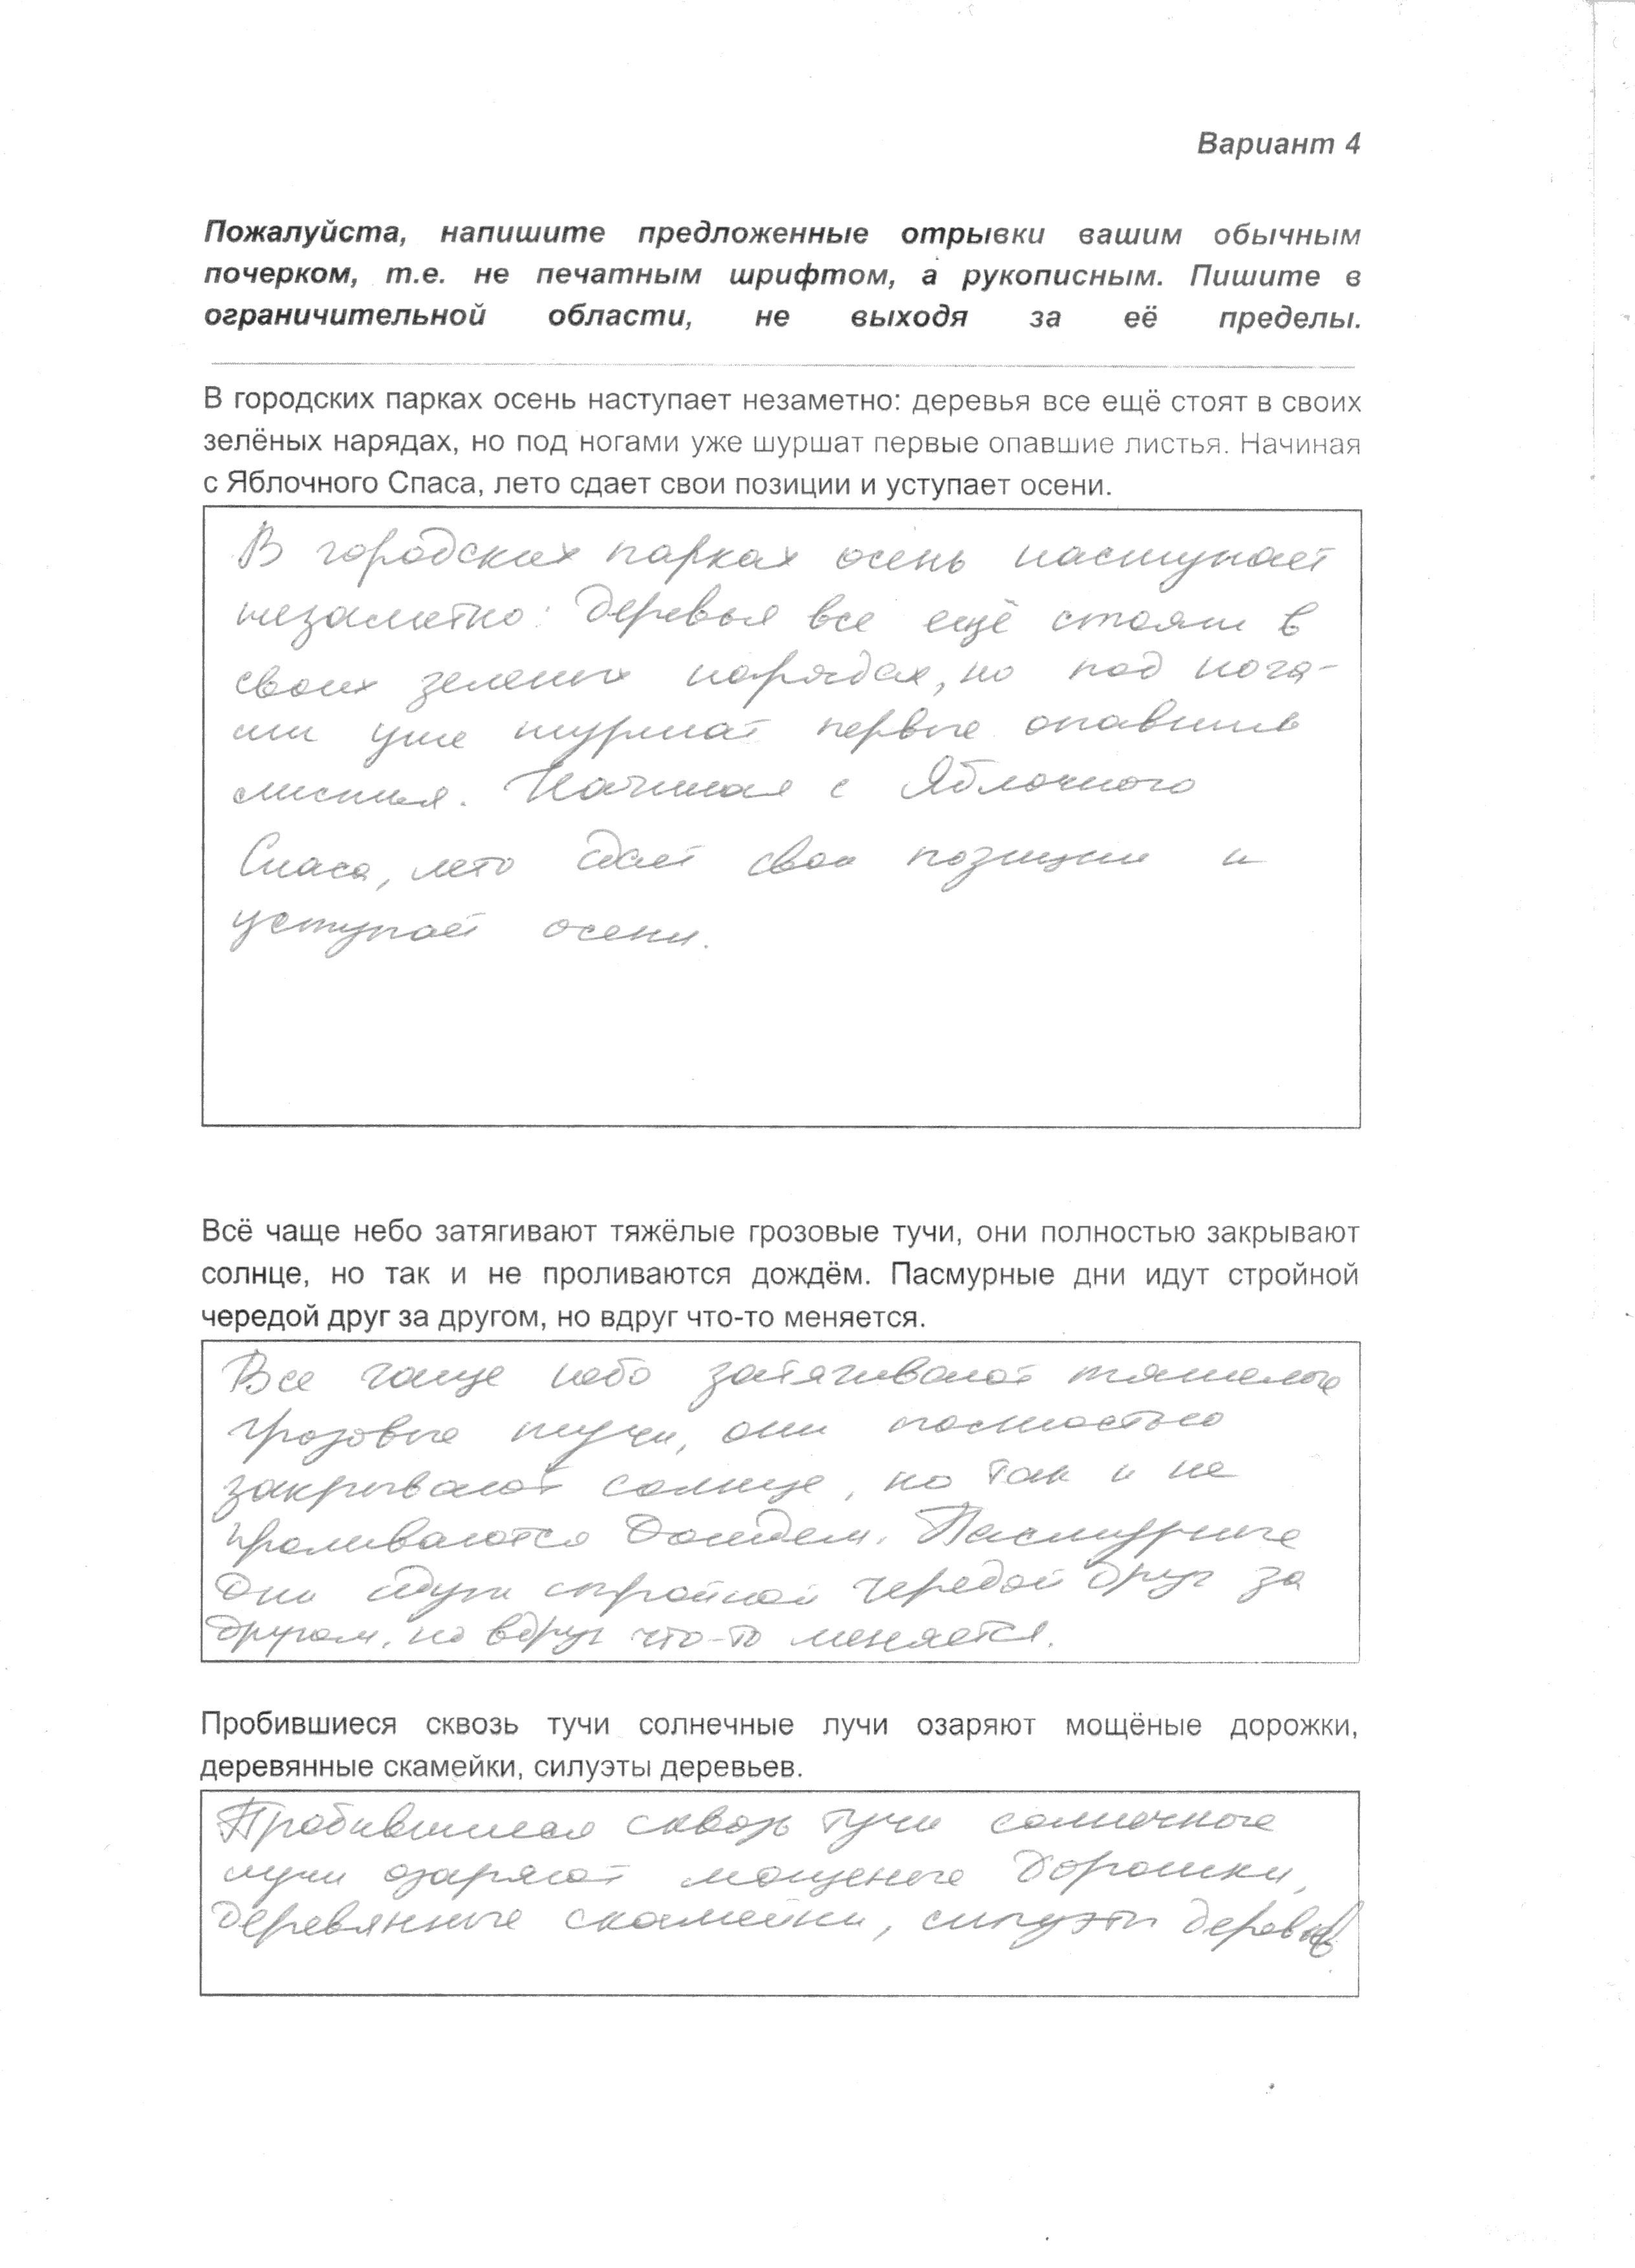 Вариант 4
Пожалуйста, напишите предложенные отрывки вашим обычным
почерком, т.е. не печатным шрифтом, а рукописным. Пишите в
ограничительной области, не выходя за её пределы.
В городских парках осень наступает незаметно: деревья все ещё стоят в своих
зелёных нарядах, но под ногами уже шуршат первые опавшие листья. Начиная
с Яблочного Спаса, лето сдает свои позиции и уступает осени.
В городских парках осень наступает
незаметно: деревья все ещё стоят в
своих зеленых нарядах, но под нога-
ми уже шуршат первые опавшие
листья. Начиная с Яблочного
Спаса, лето сдает свои позиции и
уступает осени.
Всё чаще небо затягивают тяжёлые грозовые тучи, они полностью закрывают
солнце, но так и не проливаются дождём. Пасмурные дни идут стройной
чередой друг за другом, но вдруг что-то меняется.
Все чаще небо затягивают тяжелые
грозовые тучи, они полностью
закрывают солнце, но так и не
проливаются дождем. Пасмурные
дни идут стройной чередой друг за
другом, но вдруг что-то меняется.
Пробившиеся сквозь тучи солнечные лучи озаряют мощёные дорожки,
деревянные скамейки, силуэты деревьев.
Пробившиеся сквозь тучи солнечные
лучи озаряют мощеные дорожки,
деревянные скамейки, силуэты деревьев.